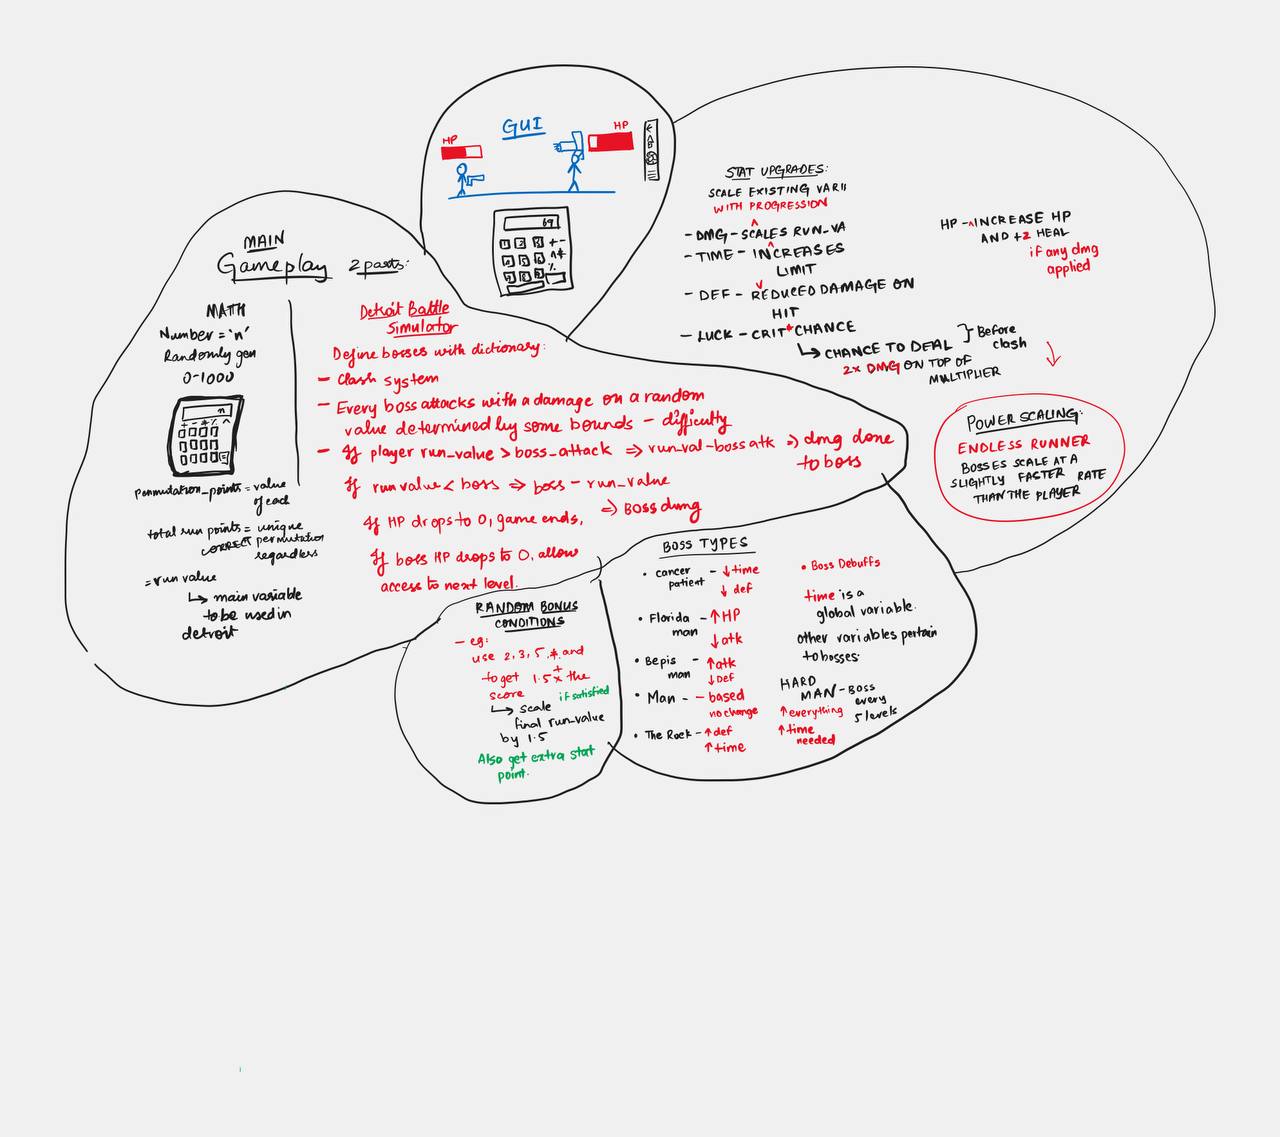 GUI
HP
HP
69
1 2 3 + -
MAIN
Gameplay 2 parts:
MATH
Number = 'n'
Randomly gen
0-1000
n
permutation_points = value
of each
total run points = unique
CORRECT permutation
regardless
= run value
↳ main variable
to be used in
detroit
Detroit Battle
Simulator
Define bosses with dictionary:
- Clash system
- Every boss attacks with a damage on a random
value determined by some bounds - difficulty
- If player run_value > boss_attack ⇒ run_val-boss atk ⇒ dmg done
to boss
If run value < boss ⇒ boss - run_value
⇒ Boss dmg
If HP drops to 0, game ends.
If boss HP drops to 0, allow
access to next level.
STAT UPGRADES:
SCALE EXISTING
WITH PROGRESSION
- DMG - SCALES RUN_VA
- TIME - INCREASES
LIMIT
- DEF - REDUCED DAMAGE ON
HIT
- LUCK - CRIT CHANCE
↳ CHANCE TO DEAL
2x DMG ON TOP OF
MULTIPLIER
} Before
clash
HP - INCREASE HP
AND +2 HEAL
if any dmg
applied
POWER SCALING:
ENDLESS RUNNER
BOSSES SCALE AT A
SLIGHTLY FASTER RATE
THAN THE PLAYER
RANDOM BONUS
CONDITIONS
- eg:
use 2, 3, 5, * and
+
to get 1.5x the
score if satisfied
↳ scale
final run_value
by 1.5
Also get extra stat
point.
BOSS TYPES
• cancer
patient - ↓ time
↓ def
• Florida
man - ↑ HP
↓ atk
• Bepis
man - ↑ atk
↓ Def
• Man - - based
no change
• The Rock - ↑ def
↑ time
• Boss Debuffs
time is a
global variable.
other variables pertain
to bosses.
HARD
MAN - BOSS
every
5 levels
↑ everything
↑ time
needed